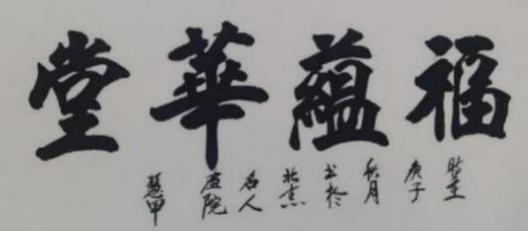 福蘊華堂
歲在
庚子
秋月
書於
北京
名人
畫院
慧甲